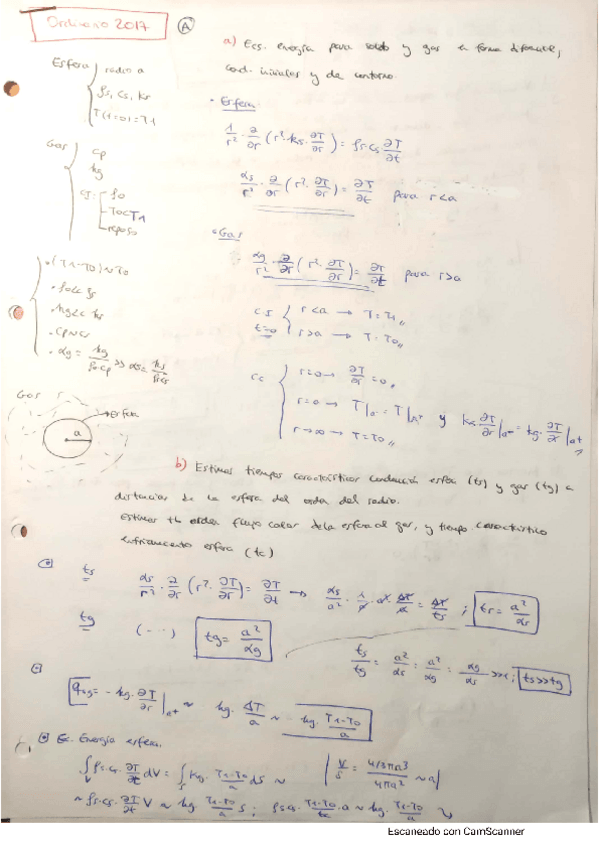 Ordinario 2017
A
a) Ecs. energía para solido y gas en forma diferencial,
cond. iniciales y de contorno.
Esfera { radio a
ρs, cs, ks
T(t=0)=T1
Gas { cp
kg
ρ0
T0<T1
reposo
• (T1-T0) ~ T0
• ρ0 << ρs
• kg << ks
• cp ~ cs
• αg = kg/(ρ0·cp) >> αs = ks/(ρs·cs)
• Esfera
1/r² · ∂/∂r (r²·ks·∂T/∂r) = ρs·cs ∂T/∂t
αs/r² · ∂/∂r (r²·∂T/∂r) = ∂T/∂t para r<a
• Gas
αg/r² · ∂/∂r (r²·∂T/∂r) = ∂T/∂t para r>a
CI t=0 { r<a → T=T1
r>a → T=T0
CC { r=0 → ∂T/∂r = 0
r=a → T|a- = T|a+ y ks·∂T/∂r|a- = kg·∂T/∂r|a+
r→∞ → T=T0
Gas
esfera
a
b) Estimar tiempos característicos conducción esfera (ts) y gas (tg) a
distancias de la esfera del orden del radio.
Estimar orden flujo calor de la esfera al gas, y tiempo característico
enfriamiento esfera (tc)
ts αs/r² · ∂/∂r (r²·∂T/∂r) = ∂T/∂t → αs/a² · 1/a · a² · ΔT/a = ΔT/ts ; ts = a²/αs
tg (···) tg = a²/αg
ts/tg = a²/αs = a²/αg = αg/αs >>1; ts>>tg
= -kg·∂T/∂r|a+ ~ kg·ΔT/a ~ -kg·(T1-T0)/a
Ec. Energía esfera.
∫v ρs·cs·∂T/∂t dV = ∫s kg·(T1-T0)/a dS ~
| V/S = (4/3πa³)/(4πa²) ~ a |
~ ρs·cs·∂T/∂t V ~ kg·(T1-T0)/a S ; ρs·cs·(T1-T0)/tc · a ~ kg·(T1-T0)/a
Escaneado con CamScanner